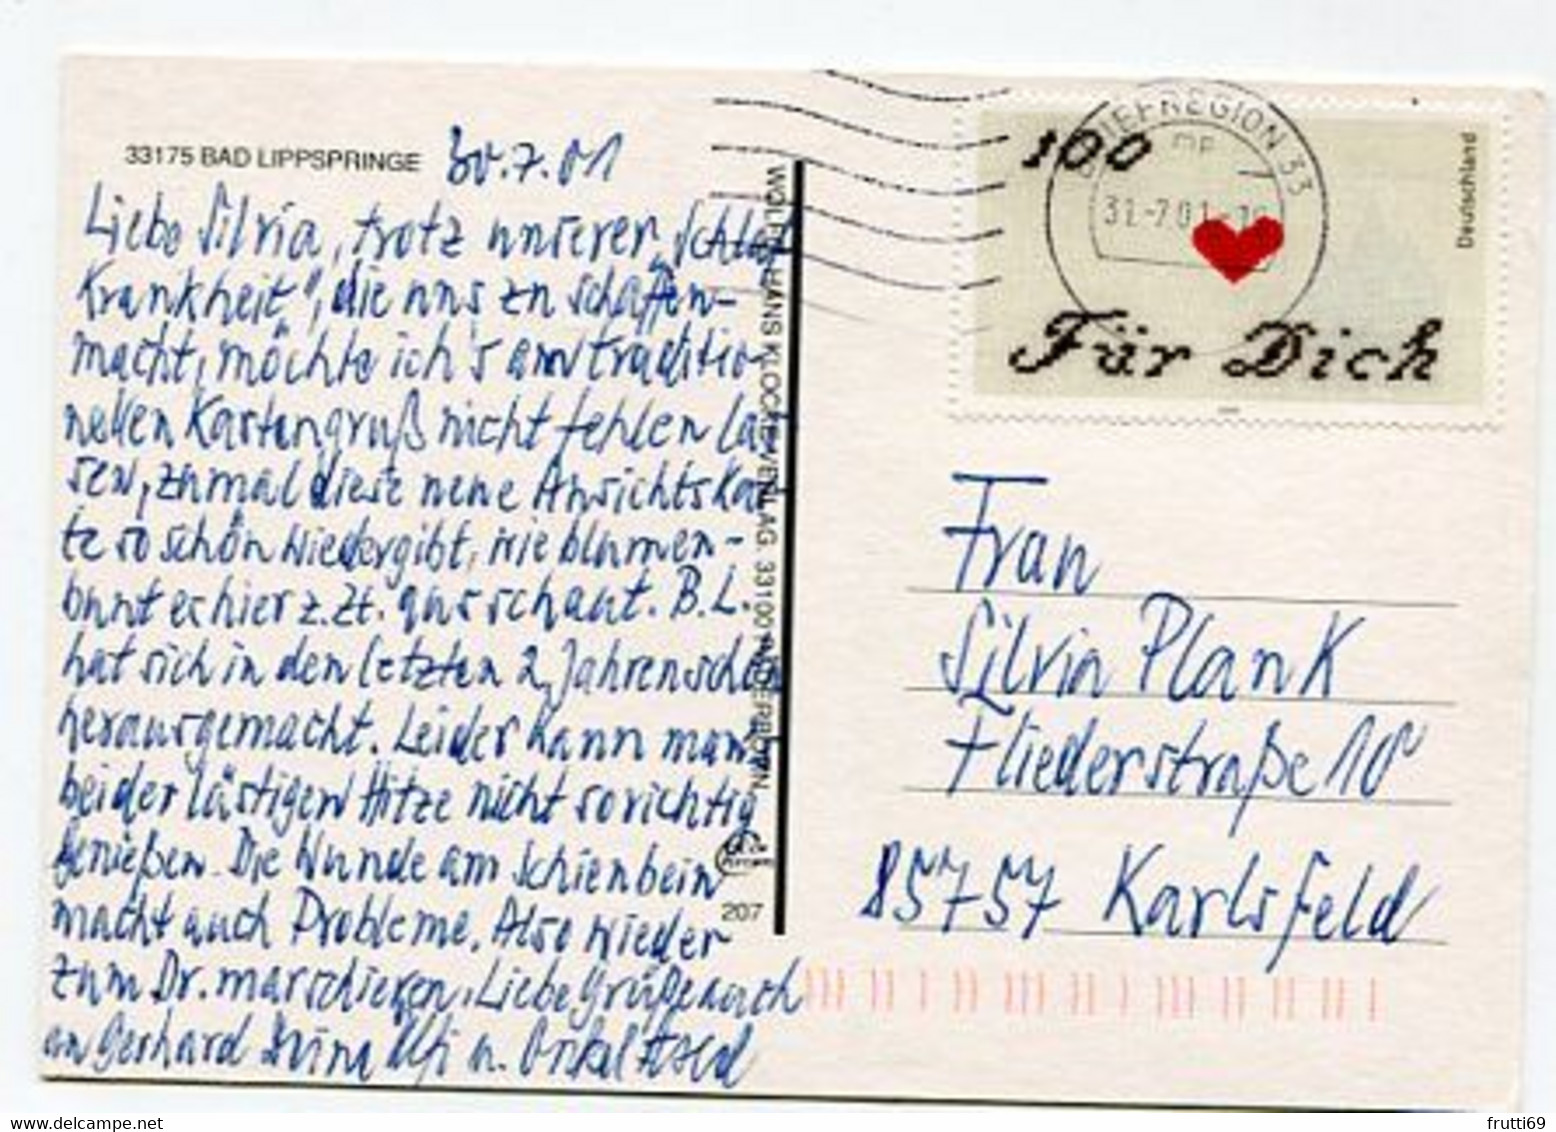 33175 BAD LIPPSPRINGE 30.7.01
Liebe Silvia, trotz unserer "Schlaf
Krankheit", die uns zu schaffen-
macht, möchte ich's am traditio-
nellen Kartengruß nicht fehlen las-
sen, zumal diese neue Ansichtskar-
te so schön wiedergibt, wie blumen-
bunt es hier z. Zt. ausschaut. B.L.
hat sich in den letzten 2 Jahren schön
herausgemacht. Leider kann man
bei der lästigen Hitze nicht so richtig
genießen. Die Wunde am Schienbein
macht auch Probleme. Also wieder
zum Dr. marschieren. Liebe Grüße auch
an Gerhard Alfi u. Onkel
207
BRIEFREGION 33
mp
31.-7.01
100
Deutschland
Für Dich
Frau
Silvia Plank
Fliederstraße 10
85757 Karlsfeld
frutti69